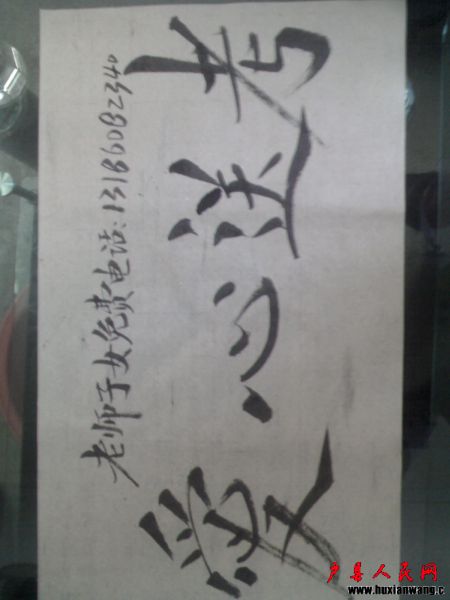 老师子女免费电话:13186082340
愛心送考
户县人民网
www.huxianwang.c